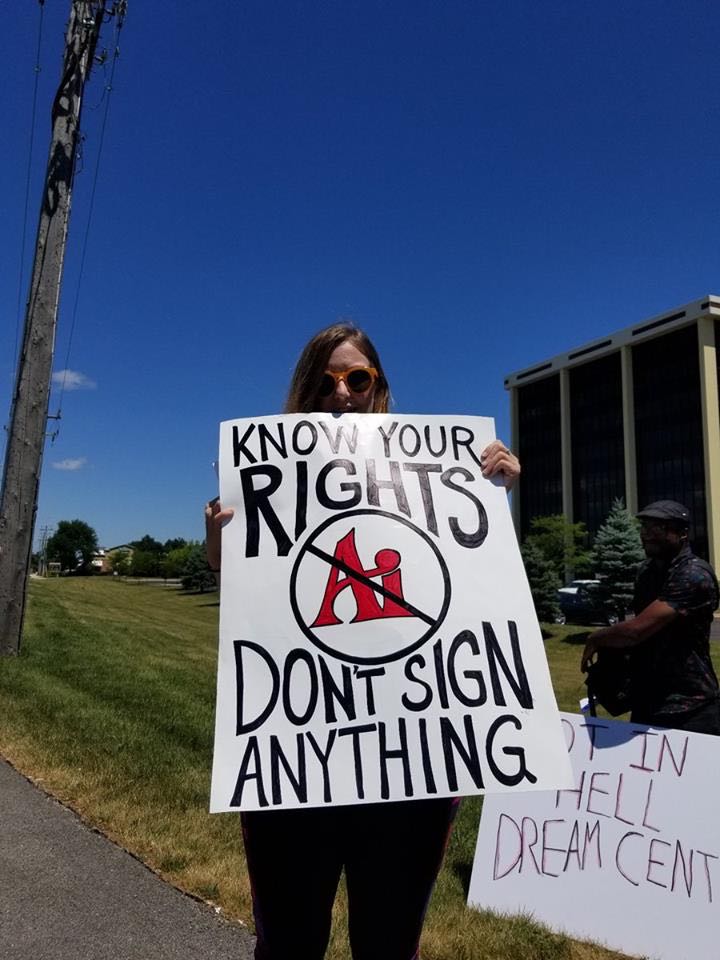 KNOW YOUR
RIGHTS
Ai
DON'T SIGN
ANYTHING
IN
HELL
DREAM CENT